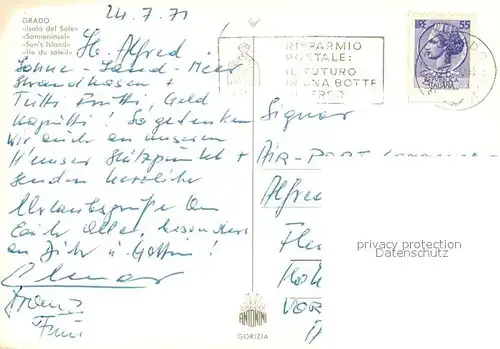 GRADO
«Isola del Sole»
«Sonneninsel»
«Sun's Island»
«Ile du soleil»
24.7.71
Alfred!
Sonne Sand - Meer
Strandhasen +
Tutti Frutti, Geld
Kaputti! So gedenken
wir auch an unseren
Stützpunkt +
senden herzliche
Urlaubsgrüße an
Euch alle, besonders
an Dich u. Gattin!
Franz
RISPARMIO
POSTALE:
IL FUTURO
IN UNA BOTTE
LIRE 55
ITALIA
Signor
AIR-PORT
Alfred
VOR
privacy protection
ANTONINI
GORIZIA